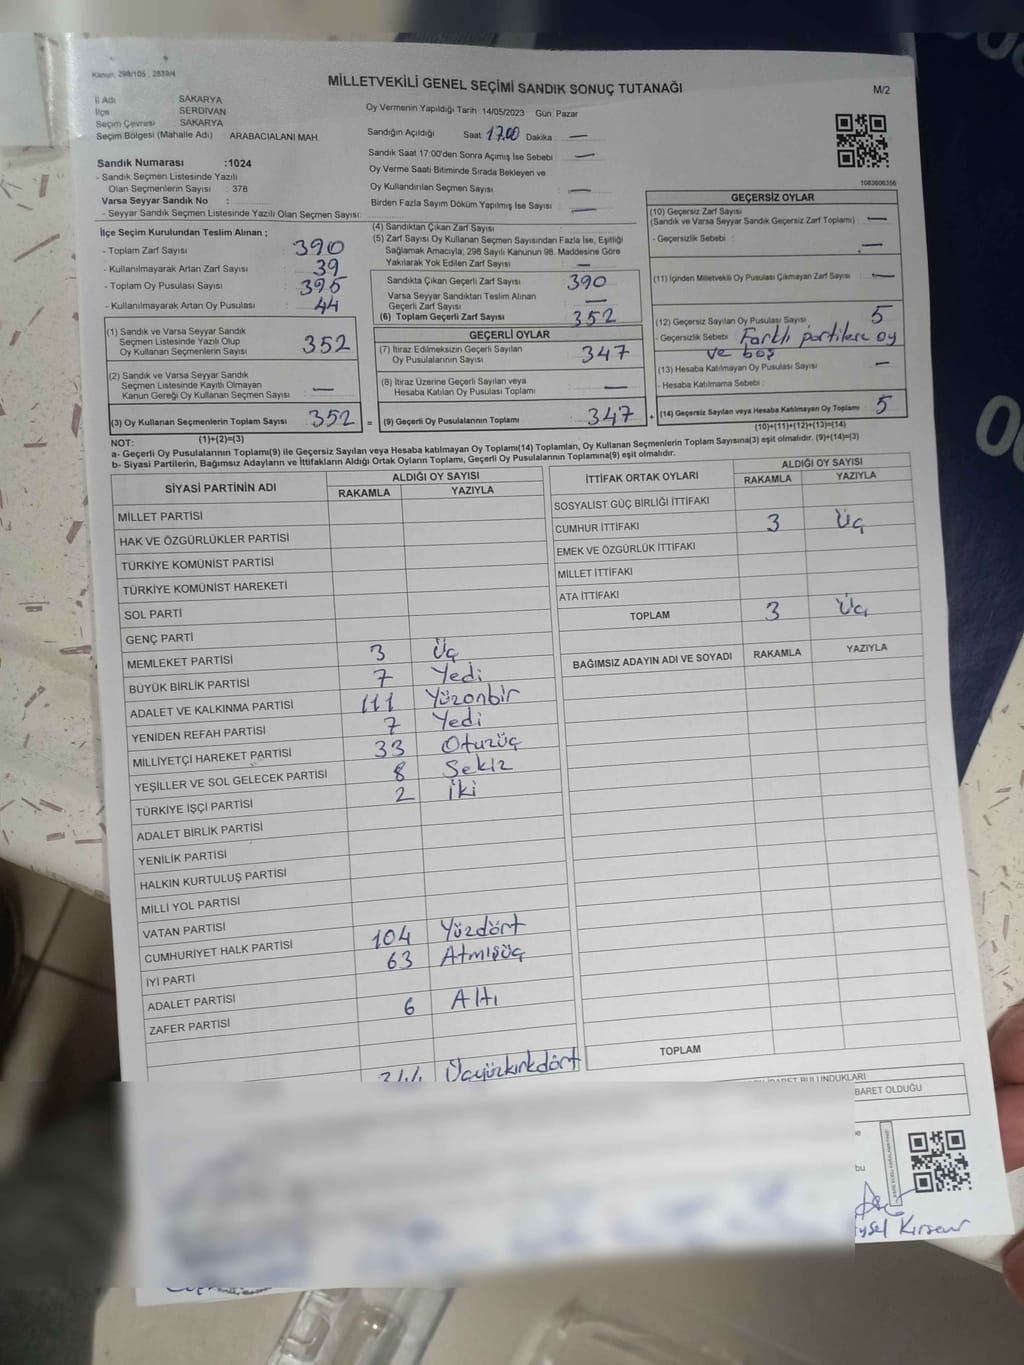 Kanun, 298/105 , 2839/4
MİLLETVEKİLİ GENEL SEÇİMİ SANDIK SONUÇ TUTANAĞI
M/2
İl Adı SAKARYA
İlçe SERDİVAN
Seçim Çevresi SAKARYA
Seçim Bölgesi (Mahalle Adı) : ARABACIALANI MAH.
Oy Vermenin Yapıldığı Tarih :14/05/2023 Gün: Pazar
Sandığın Açıldığı Saat 17.00 Dakika : —
Sandık Saat 17:00'den Sonra Açımış İse Sebebi : —
Oy Verme Saati Bitiminde Sırada Bekleyen ve
Oy Kullandırılan Seçmen Sayısı : —
Birden Fazla Sayım Döküm Yapılmış İse Sayısı : —
1083606356
Sandık Numarası :1024
- Sandık Seçmen Listesinde Yazılı
Olan Seçmenlerin Sayısı : 378
Varsa Seyyar Sandık No :
- Seyyar Sandık Seçmen Listesinde Yazılı Olan Seçmen Sayısı:
İlçe Seçim Kurulundan Teslim Alınan ;
- Toplam Zarf Sayısı : 390
- Kullanılmayarak Artan Zarf Sayısı : 39
- Toplam Oy Pusulası Sayısı : 396
- Kullanılmayarak Artan Oy Pusulası : 44
(1) Sandık ve Varsa Seyyar Sandık
Seçmen Listesinde Yazılı Olup
Oy Kullanan Seçmenlerin Sayısı : 352
(2) Sandık ve Varsa Seyyar Sandık
Seçmen Listesinde Kayıtlı Olmayan
Kanun Gereği Oy Kullanan Seçmen Sayısı : —
(3) Oy Kullanan Seçmenlerin Toplam Sayısı : 352
(1)+(2)=(3)
(4) Sandıktan Çıkan Zarf Sayısı :
(5) Zarf Sayısı Oy Kullanan Seçmen Sayısından Fazla İse, Eşitliği
Sağlamak Amacıyla; 298 Sayılı Kanunun 98. Maddesine Göre
Yakılarak Yok Edilen Zarf Sayısı : —
Sandıkta Çıkan Geçerli Zarf Sayısı : 390
Varsa Seyyar Sandıktan Teslim Alınan
Geçerli Zarf Sayısı : —
(6) Toplam Geçerli Zarf Sayısı : 352
GEÇERLİ OYLAR
(7) İtiraz Edilmeksizin Geçerli Sayılan
Oy Pusulalarının Sayısı : 347
(8) İtiraz Üzerine Geçerli Sayılan veya
Hesaba Katılan Oy Pusulası Toplamı : —
= (9) Geçerli Oy Pusulalarının Toplamı : 347
GEÇERSİZ OYLAR
(10) Geçersiz Zarf Sayısı
(Sandık ve Varsa Seyyar Sandık Geçersiz Zarf Toplamı) : —
- Geçersizlik Sebebi : —
(11) İçinden Milletvekili Oy Pusulası Çıkmayan Zarf Sayısı : —
(12) Geçersiz Sayılan Oy Pusulası Sayısı : 5
- Geçersizlik Sebebi : Farklı partilere oy
ve boş
(13) Hesaba Katılmayan Oy Pusulası Sayısı : —
- Hesaba Katılmama Sebebi :
+ (14) Geçersiz Sayılan veya Hesaba Katılmayan Oy Toplamı : 5
(10)+(11)+(12)+(13)=(14)
NOT:
a- Geçerli Oy Pusulalarının Toplamı(9) ile Geçersiz Sayılan veya Hesaba katılmayan Oy Toplamı(14) Toplamları, Oy Kullanan Seçmenlerin Toplam Sayısına(3) eşit olmalıdır. (9)+(14)=(3)
b- Siyasi Partilerin, Bağımsız Adayların ve İttifakların Aldığı Ortak Oyların Toplamı, Geçerli Oy Pusulalarının Toplamına(9) eşit olmalıdır.
SİYASİ PARTİNİN ADI ALDIĞI OY SAYISI
RAKAMLA YAZIYLA
MİLLET PARTİSİ
HAK VE ÖZGÜRLÜKLER PARTİSİ
TÜRKİYE KOMÜNİST PARTİSİ
TÜRKİYE KOMÜNİST HAREKETİ
SOL PARTİ
GENÇ PARTİ
MEMLEKET PARTİSİ 3 Üç
BÜYÜK BİRLİK PARTİSİ 7 Yedi
ADALET VE KALKINMA PARTİSİ 111 Yüzonbir
YENİDEN REFAH PARTİSİ 7 Yedi
MİLLİYETÇİ HAREKET PARTİSİ 33 Otuzüç
YEŞİLLER VE SOL GELECEK PARTİSİ 8 Sekiz
TÜRKİYE İŞÇİ PARTİSİ 2 İki
ADALET BİRLİK PARTİSİ
YENİLİK PARTİSİ
HALKIN KURTULUŞ PARTİSİ
MİLLİ YOL PARTİSİ
VATAN PARTİSİ
CUMHURİYET HALK PARTİSİ 104 Yüzdört
İYİ PARTİ 63 Atmışüç
ADALET PARTİSİ
ZAFER PARTİSİ 6 Altı
344 Üçyüzkırkdört
İTTİFAK ORTAK OYLARI ALDIĞI OY SAYISI
RAKAMLA YAZIYLA
SOSYALİST GÜÇ BİRLİĞİ İTTİFAKI
CUMHUR İTTİFAKI 3 Üç
EMEK VE ÖZGÜRLÜK İTTİFAKI
MİLLET İTTİFAKI
ATA İTTİFAKI
TOPLAM 3 Üç
BAĞIMSIZ ADAYIN ADI VE SOYADI RAKAMLA YAZIYLA
TOPLAM
BULUNDUKLARI
BARET OLDUĞU
bu
ysel Kırsever